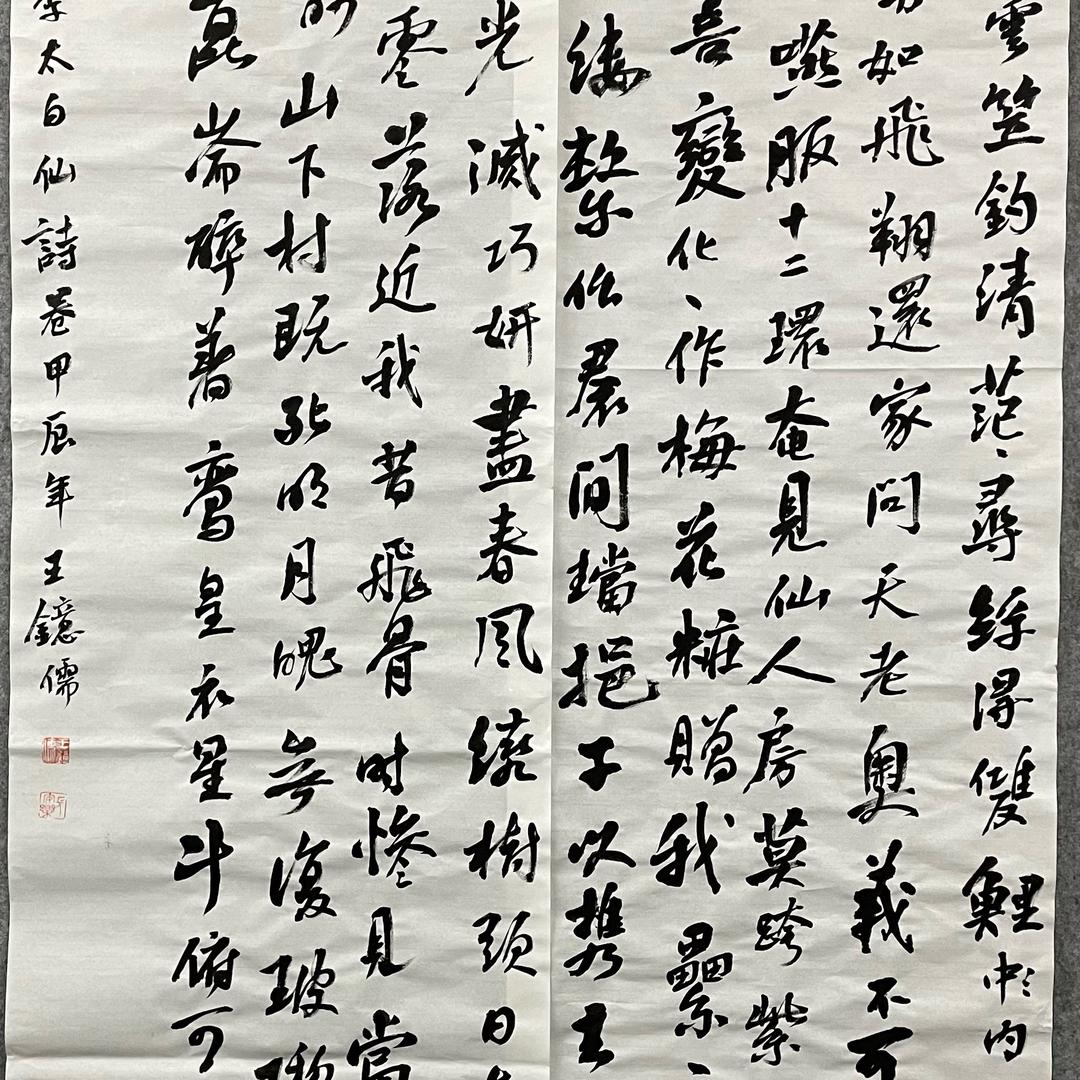 雲笠釣清茫、尋絲得雙鯉中、內
如飛翔還家問天老奧義不可
嚥服十二環奄見仙人房莫跨紫
善變化、作梅花粧贈我纍、
縷繫作裙間璫挹子以攜去
光滅巧妍盡春風繞樹頭日
零落近我昔飛骨時慘見當
山下村既死明月魄無復玻璃
崑崙醉着鸞皇衣星斗俯可
李太白仙詩卷甲辰年王鐿儒